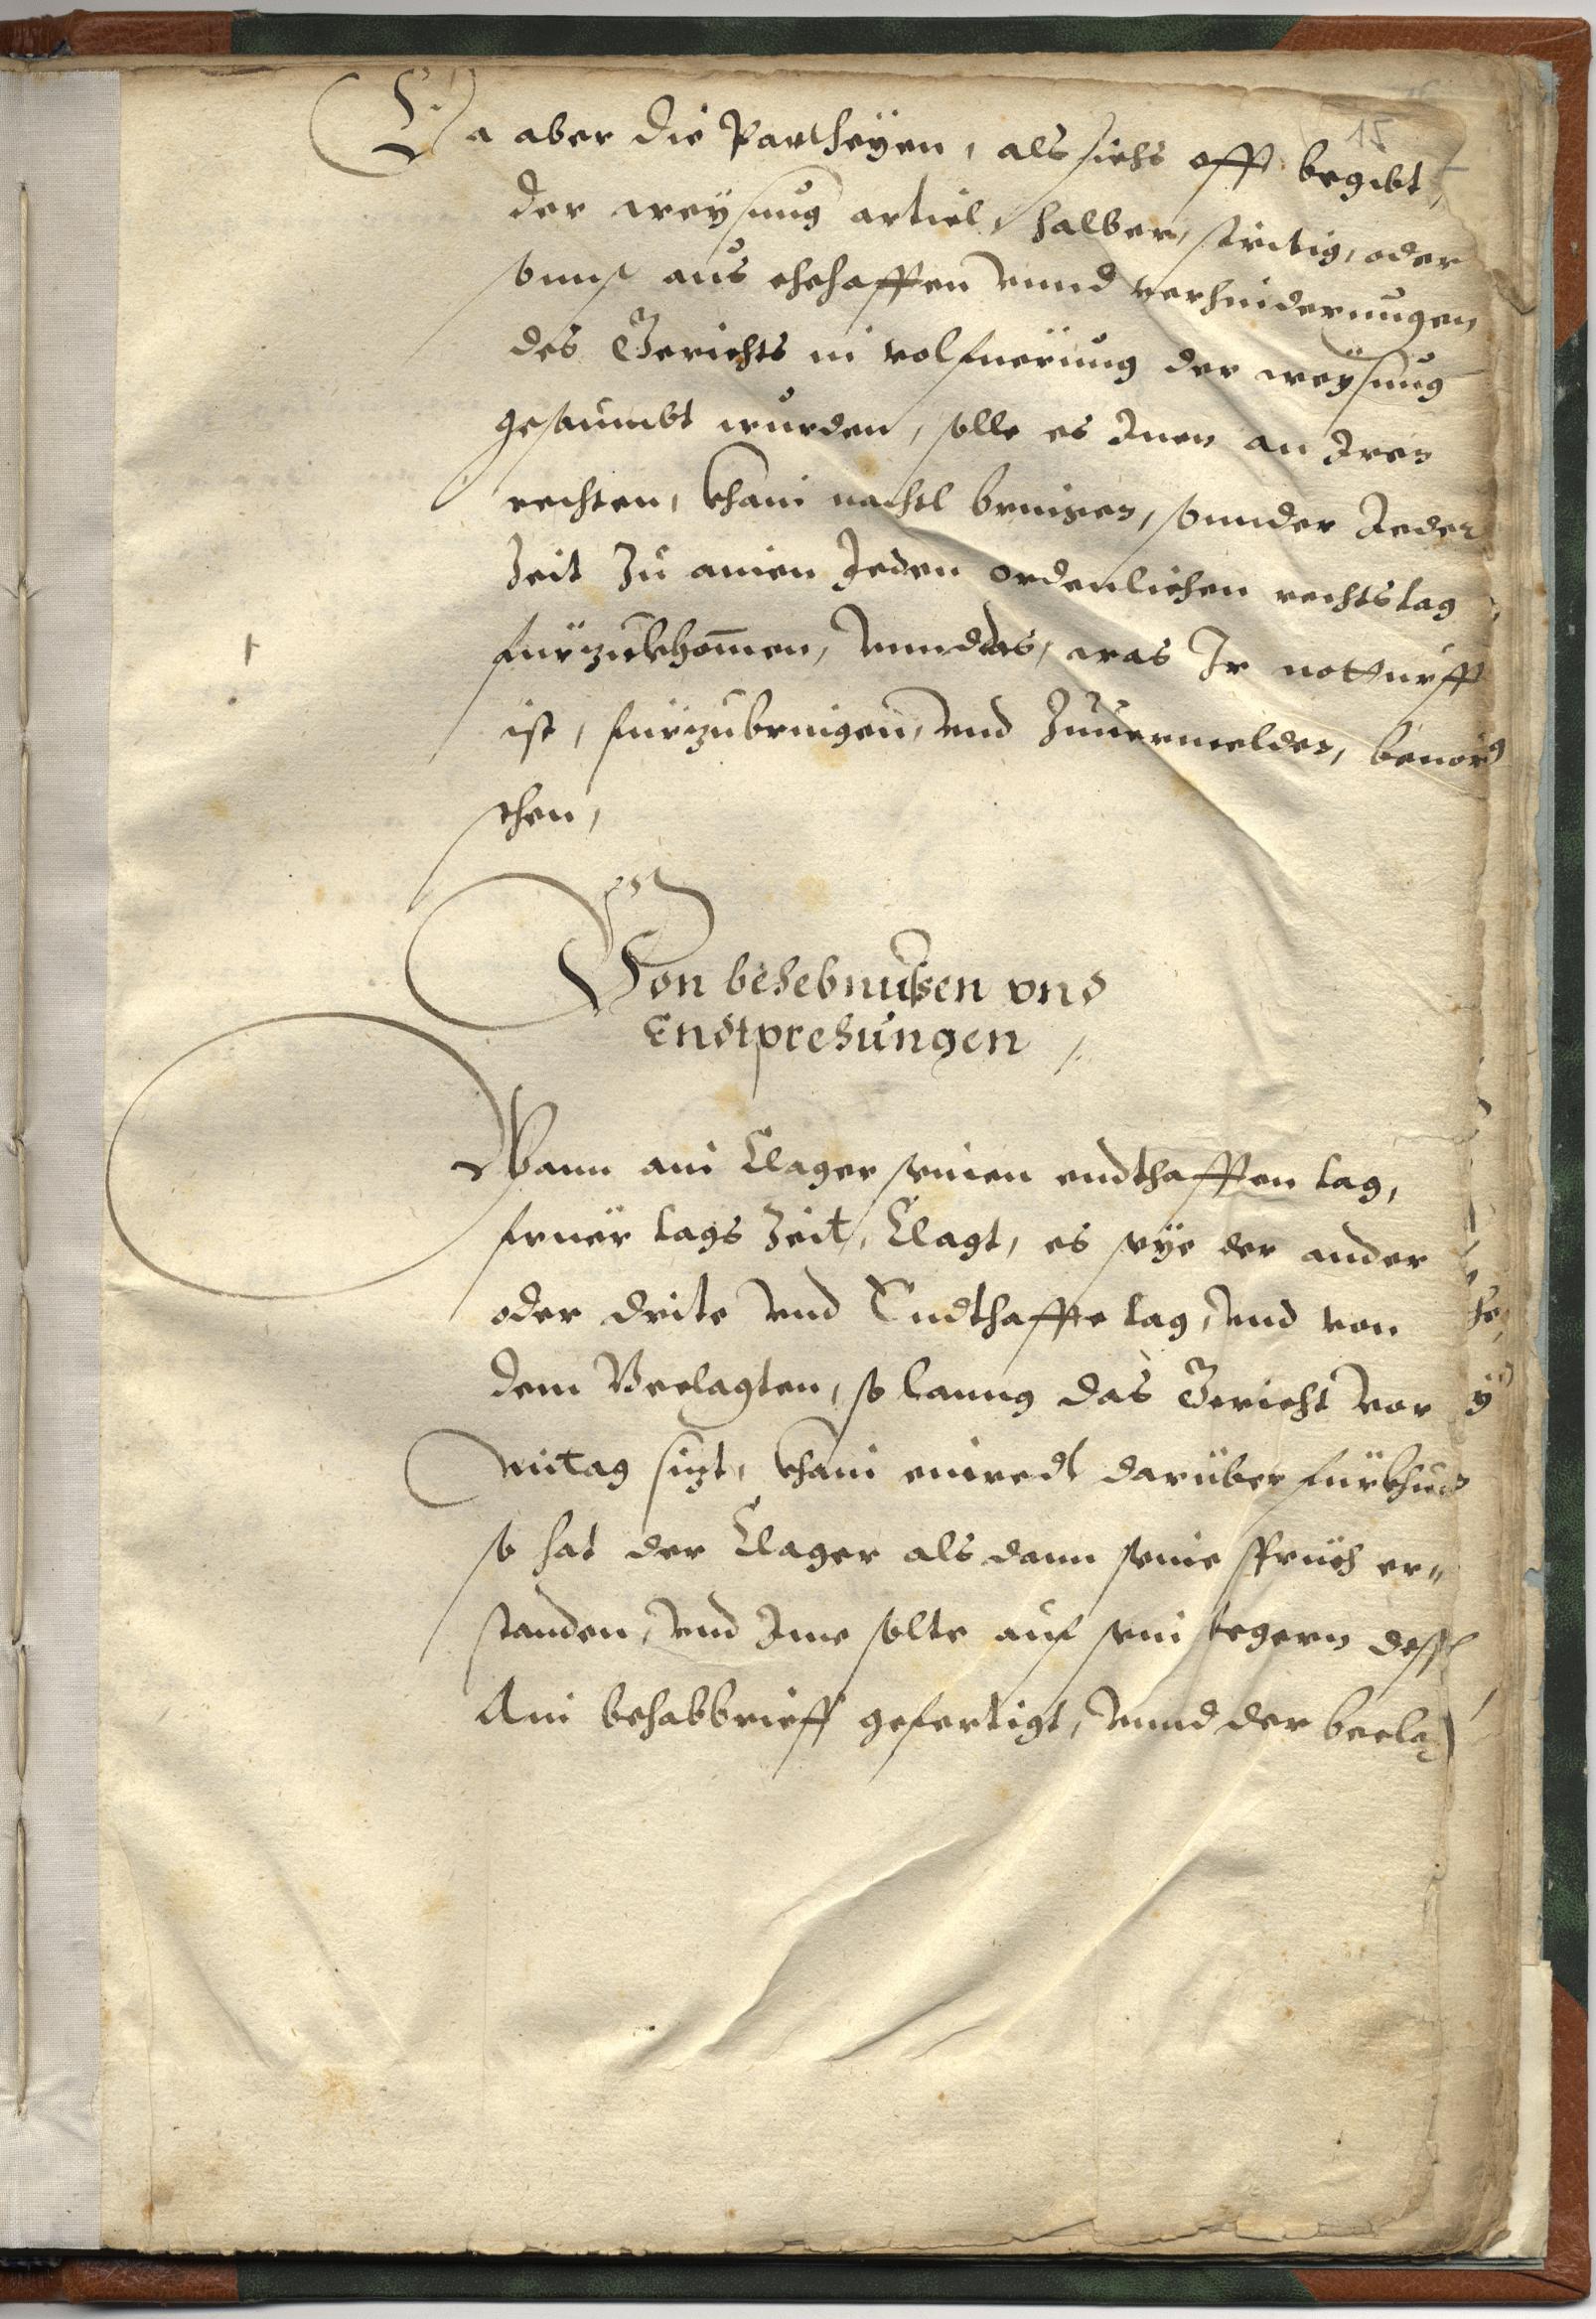 15
Da aber die Partheÿen, als sichs offt begibt,
der weÿsung articl halber, stritig, oder
sunst aus ehehafften vnnd verhinderungen
des Gerichts in volfuerung der weÿsung
gesaumbt wurden, solle es Inen an Iren
rechten, khain nachtl bringen, sunder Jeder
Zeit Zu ainen Jeden ordenlichen rechtstag
fürzukhomen, vnnd das, was Ir notturfft
ist, fürzubringen, vnd Zuuermelden, beuor
sthen,
Von behebnußen vnd
Endtprehungen
Wann ain Clager seinen endthafften tag,
fruer tags Zeit, Clagt, es seÿe der ander
oder drite vnd Endthaffte tag, vnd von
dem Beclagten, so lanng das Gericht vor
mitag sizt, khain einredt darüber fürkhumb
so hat der Clager als dann seine sprüch er=
standen, vnd Ime solte auf sein begern dess
Ain behabbrieff gefertigt, vnnd der becla